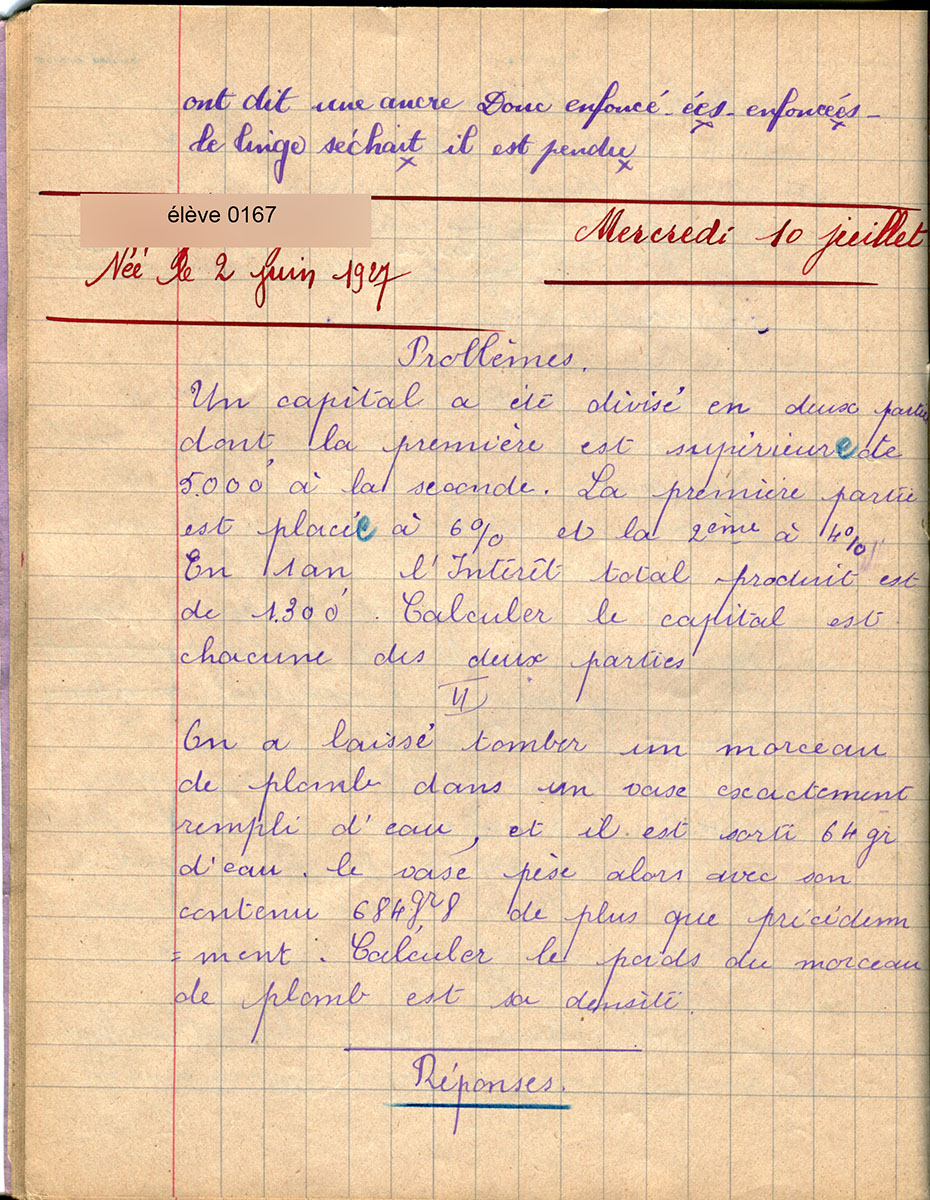 ont dit une ancre Donc enfoncé - ées - enfoncées -
le linge séchait il est pendu
élève 0167
Mercredi 10 juillet
Née le 2 Juin 1927
Problèmes.
Un capital a été divisé en deux parties
dont la première est supérieure de
5.000 à la seconde. La première partie
est placée à 6% et la 2ème à 4%
En 1 an l'Intérêt total produit est
de 1.300. Calculer le capital est
chacune des deux parties
II
On a laissé tomber un morceau
de plomb dans un vase exactement
rempli d'eau, et il est sorti 64 gr
d'eau. le vase pèse alors avec son
contenu 684gr8 de plus que précédem
= ment. Calculer le poids du morceau
de plomb est sa densité.
Réponses.